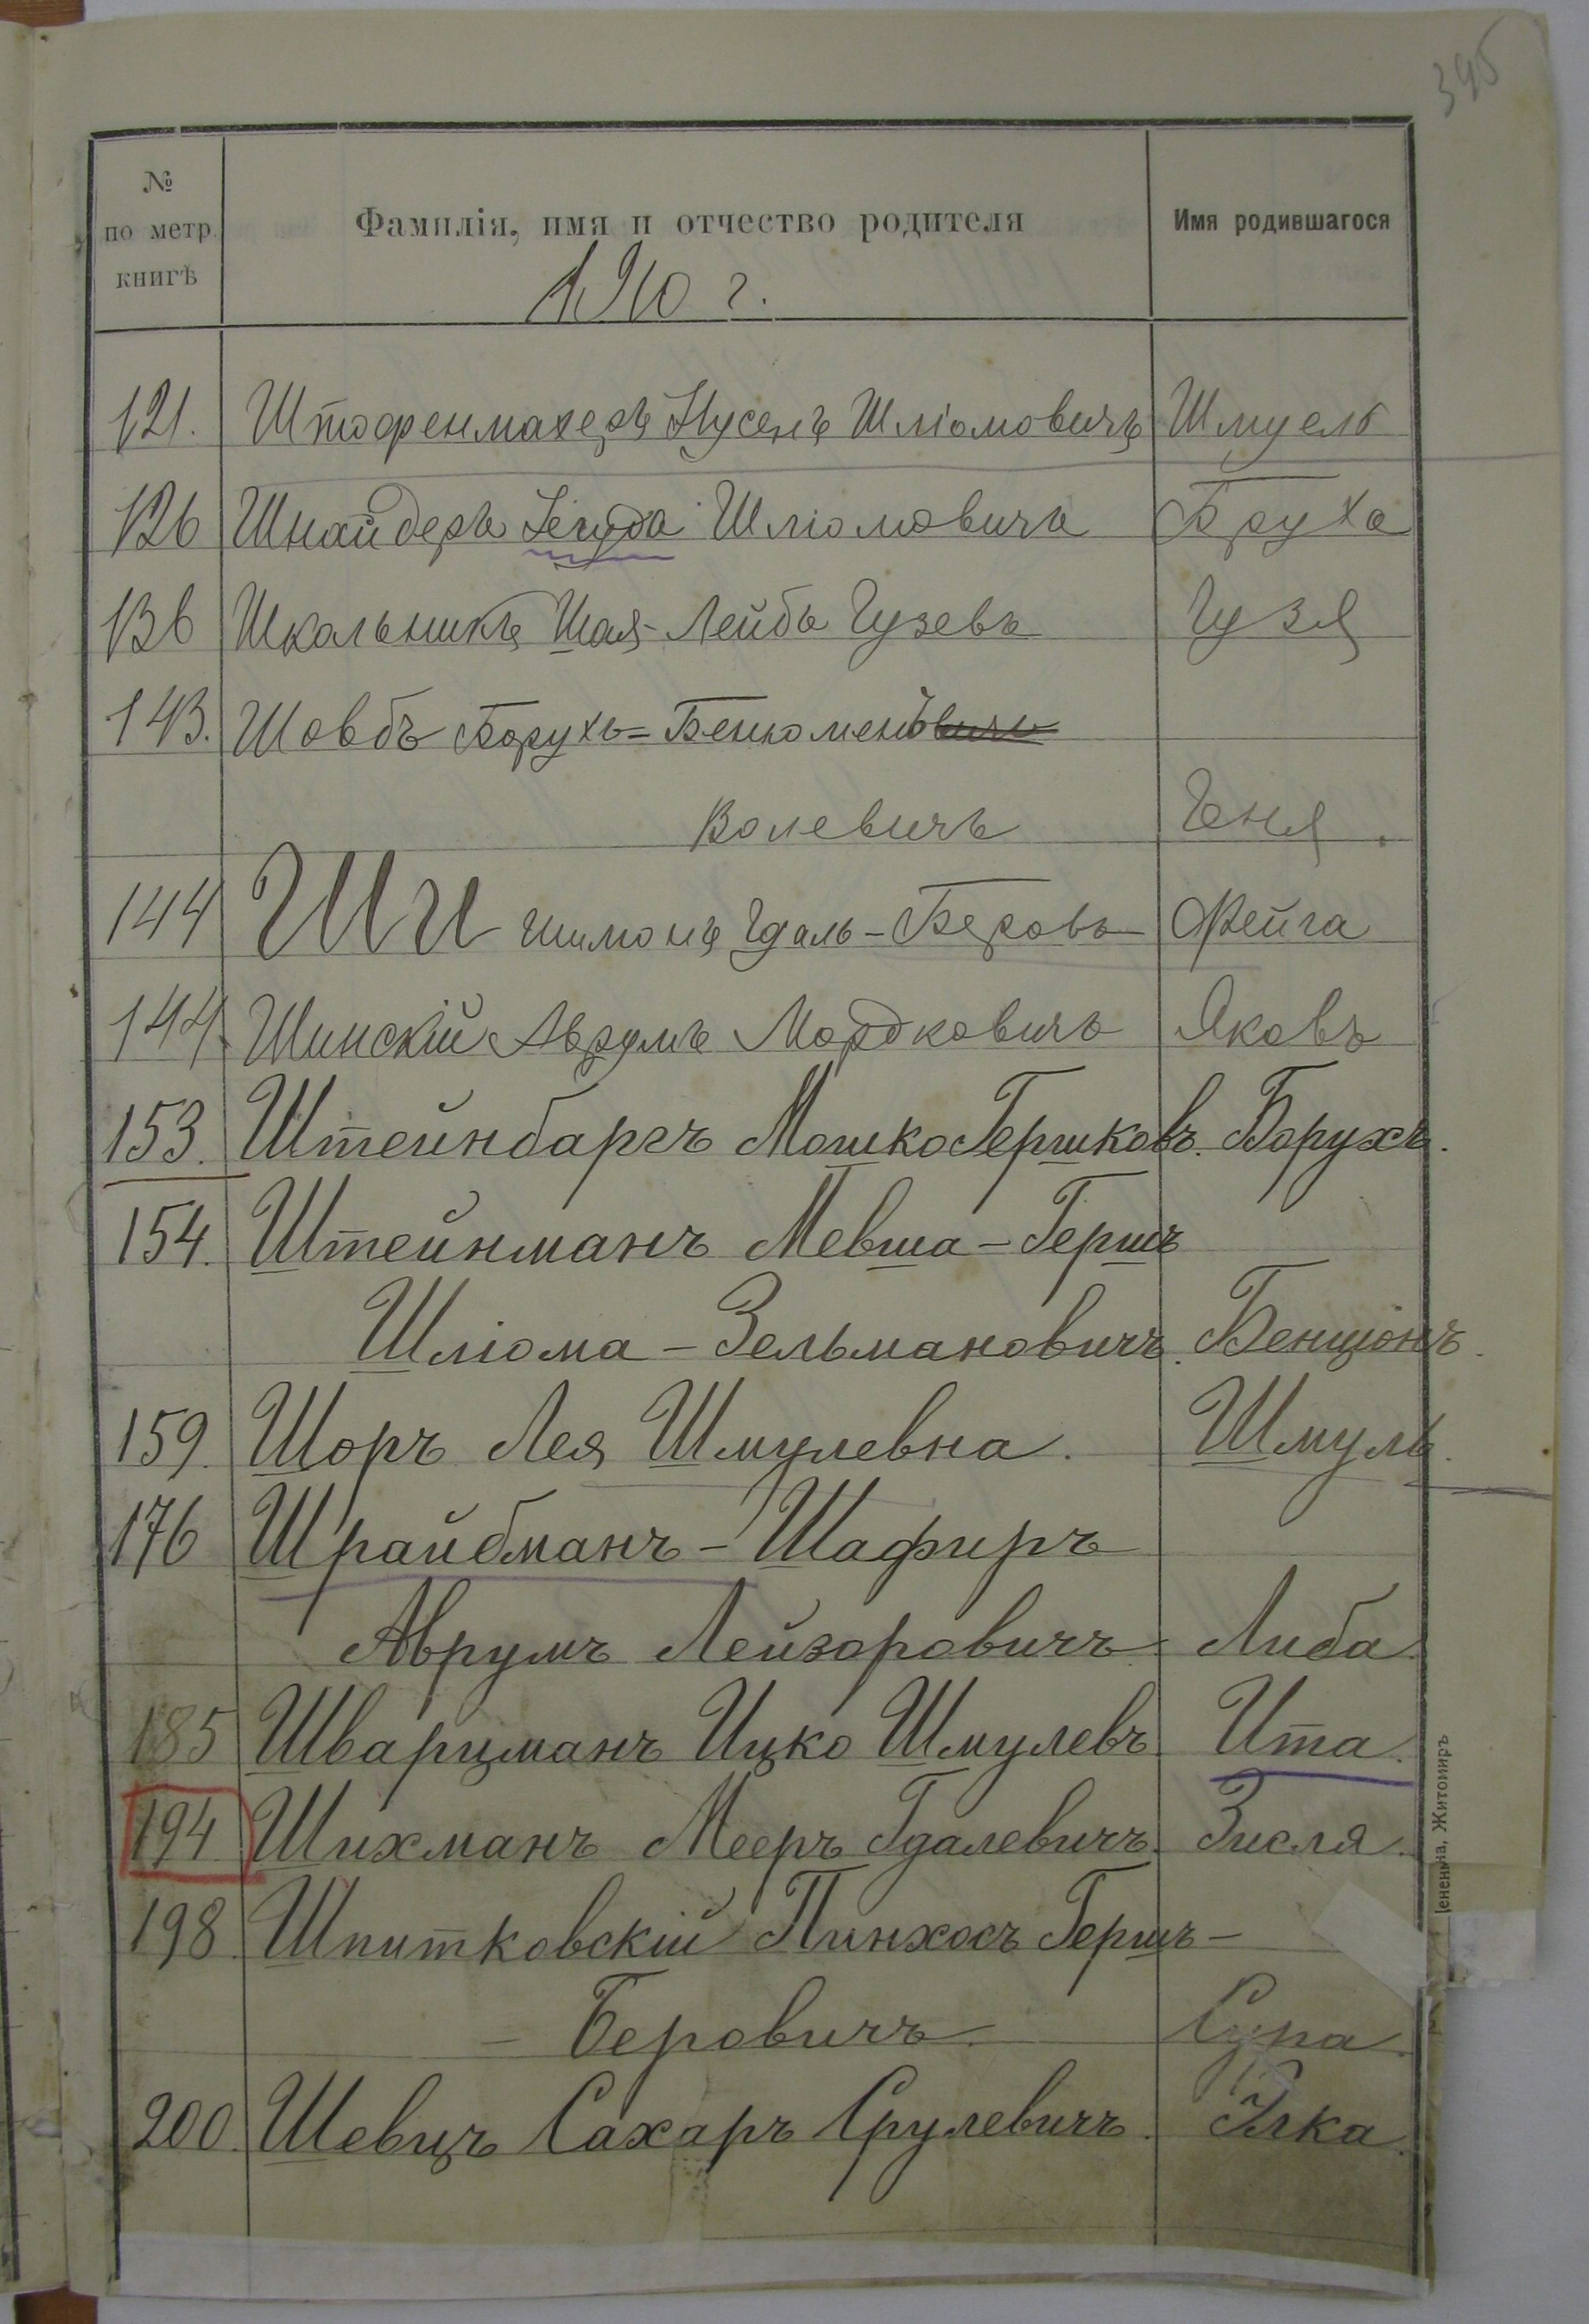 395
№
по метр.
книгѣ
Фамилія, имя и отчество родителя
Имя родившагося
1910 г.
121. Штофенмахеръ Нусенъ Шліомовичъ Шмуель
126 Шнайдеръ Іегуда Шліомовичъ Бруха
136 Школьникъ Шая-Лейбъ Гузевъ Гузя
143. Шовбъ Борухъ=Бенюменъ
Волевичъ Геня.
144 Ши Шимонъ Гдаль-Беровъ Фейга
144 Шинскій Аврумъ Мордковичъ Яковъ
153. Штейнбаргъ Мошко Гершковъ. Борухъ.
154. Штейнманъ Мевша-Гершъ
Шліома-Зельмановичъ. Бенціонъ.
159. Шоръ Лея Шмулевна. Шмуль.
176 Шрайбманъ-Шафиръ
Аврумъ Лейзоровичъ Либа.
185 Шварцманъ Ицко Шмулевъ. Ита.
194 Шихманъ Мееръ Гдалевичъ. Зисля.
198. Шпитковскій Пинхосъ Гершъ-
-Беровичъ.
200. Шевцъ Сахаръ Срулевичъ. Элка.
Житомиръ